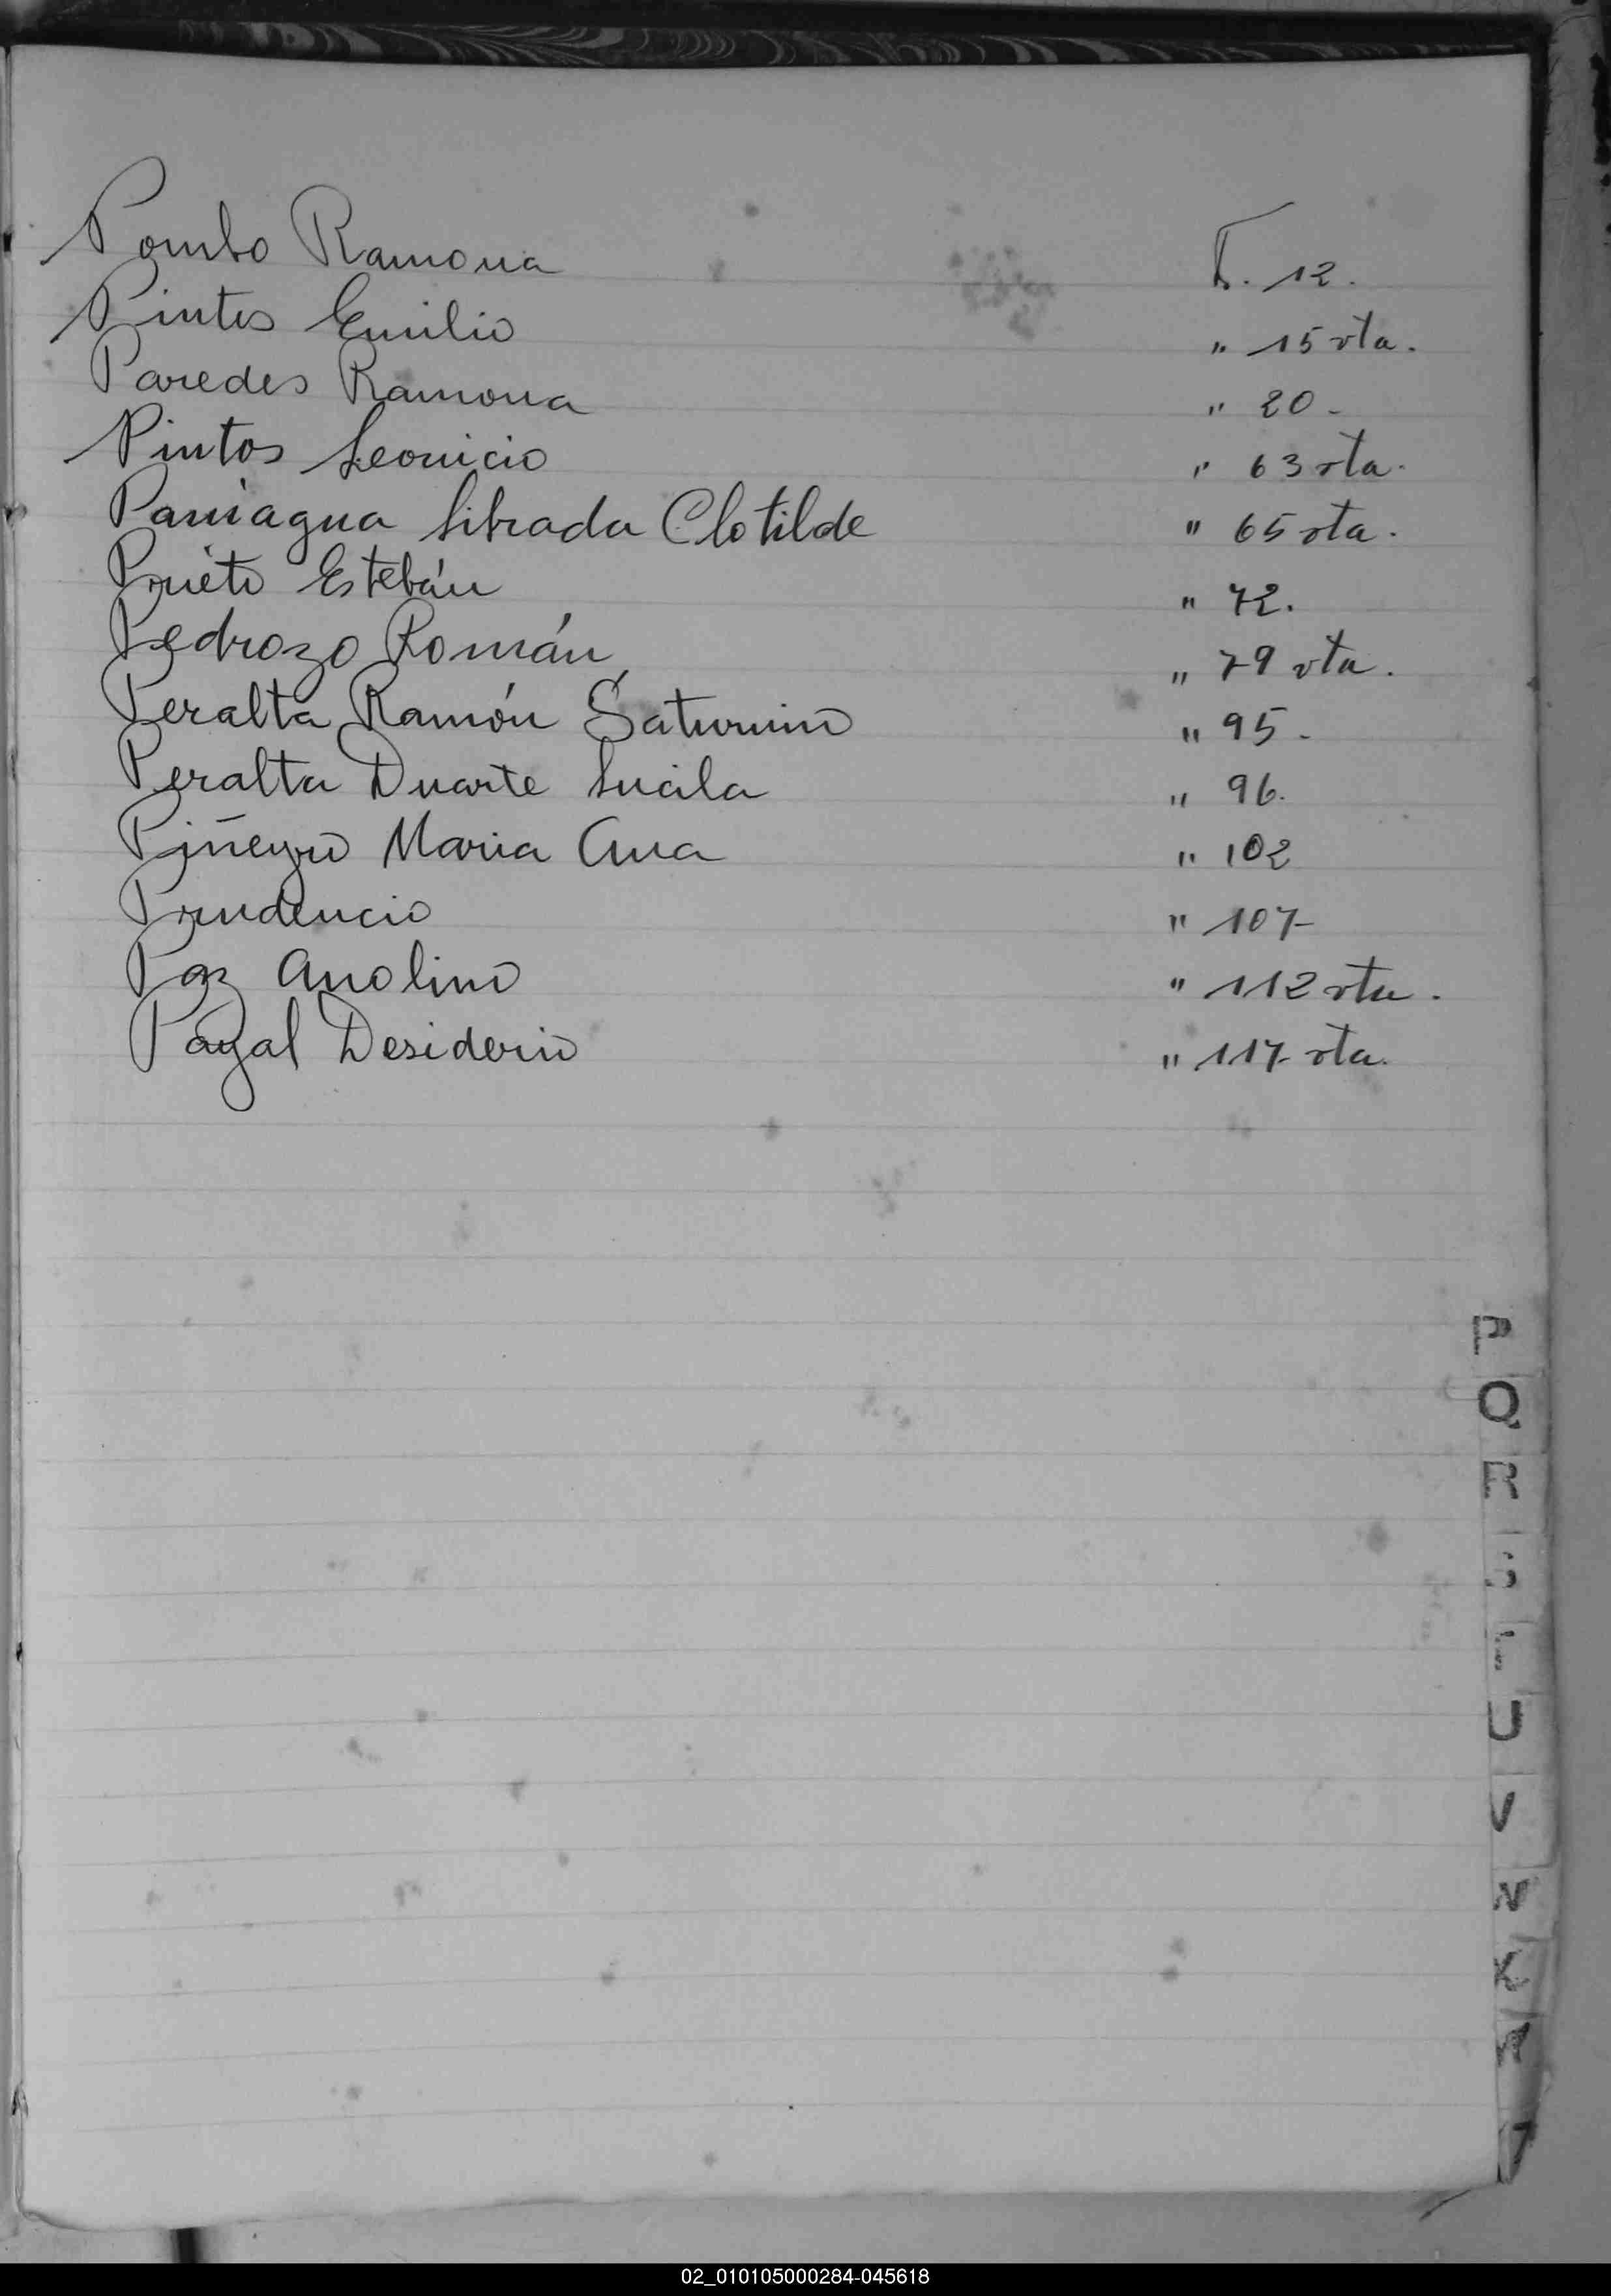 Pombo Ramona F. 12.
Pintos Emilio " 15 vta.
Paredes Ramona " 20 -
Pintos Leonicio " 63 vta.
Paniagua Librada Clotilde " 65 vta.
Prieto Estebán " 72.
Pedrozo Román " 79 vta.
Peralta Ramón Saturnino " 95 -
Peralta Duarte Lucila " 96.
Piñeyro Maria Ana " 102
Prudencio " 107
Paz Anolino " 112 vta.
Payal Desiderio " 117 vta.
P
Q
R
S
U
V
02_010105000284-045618